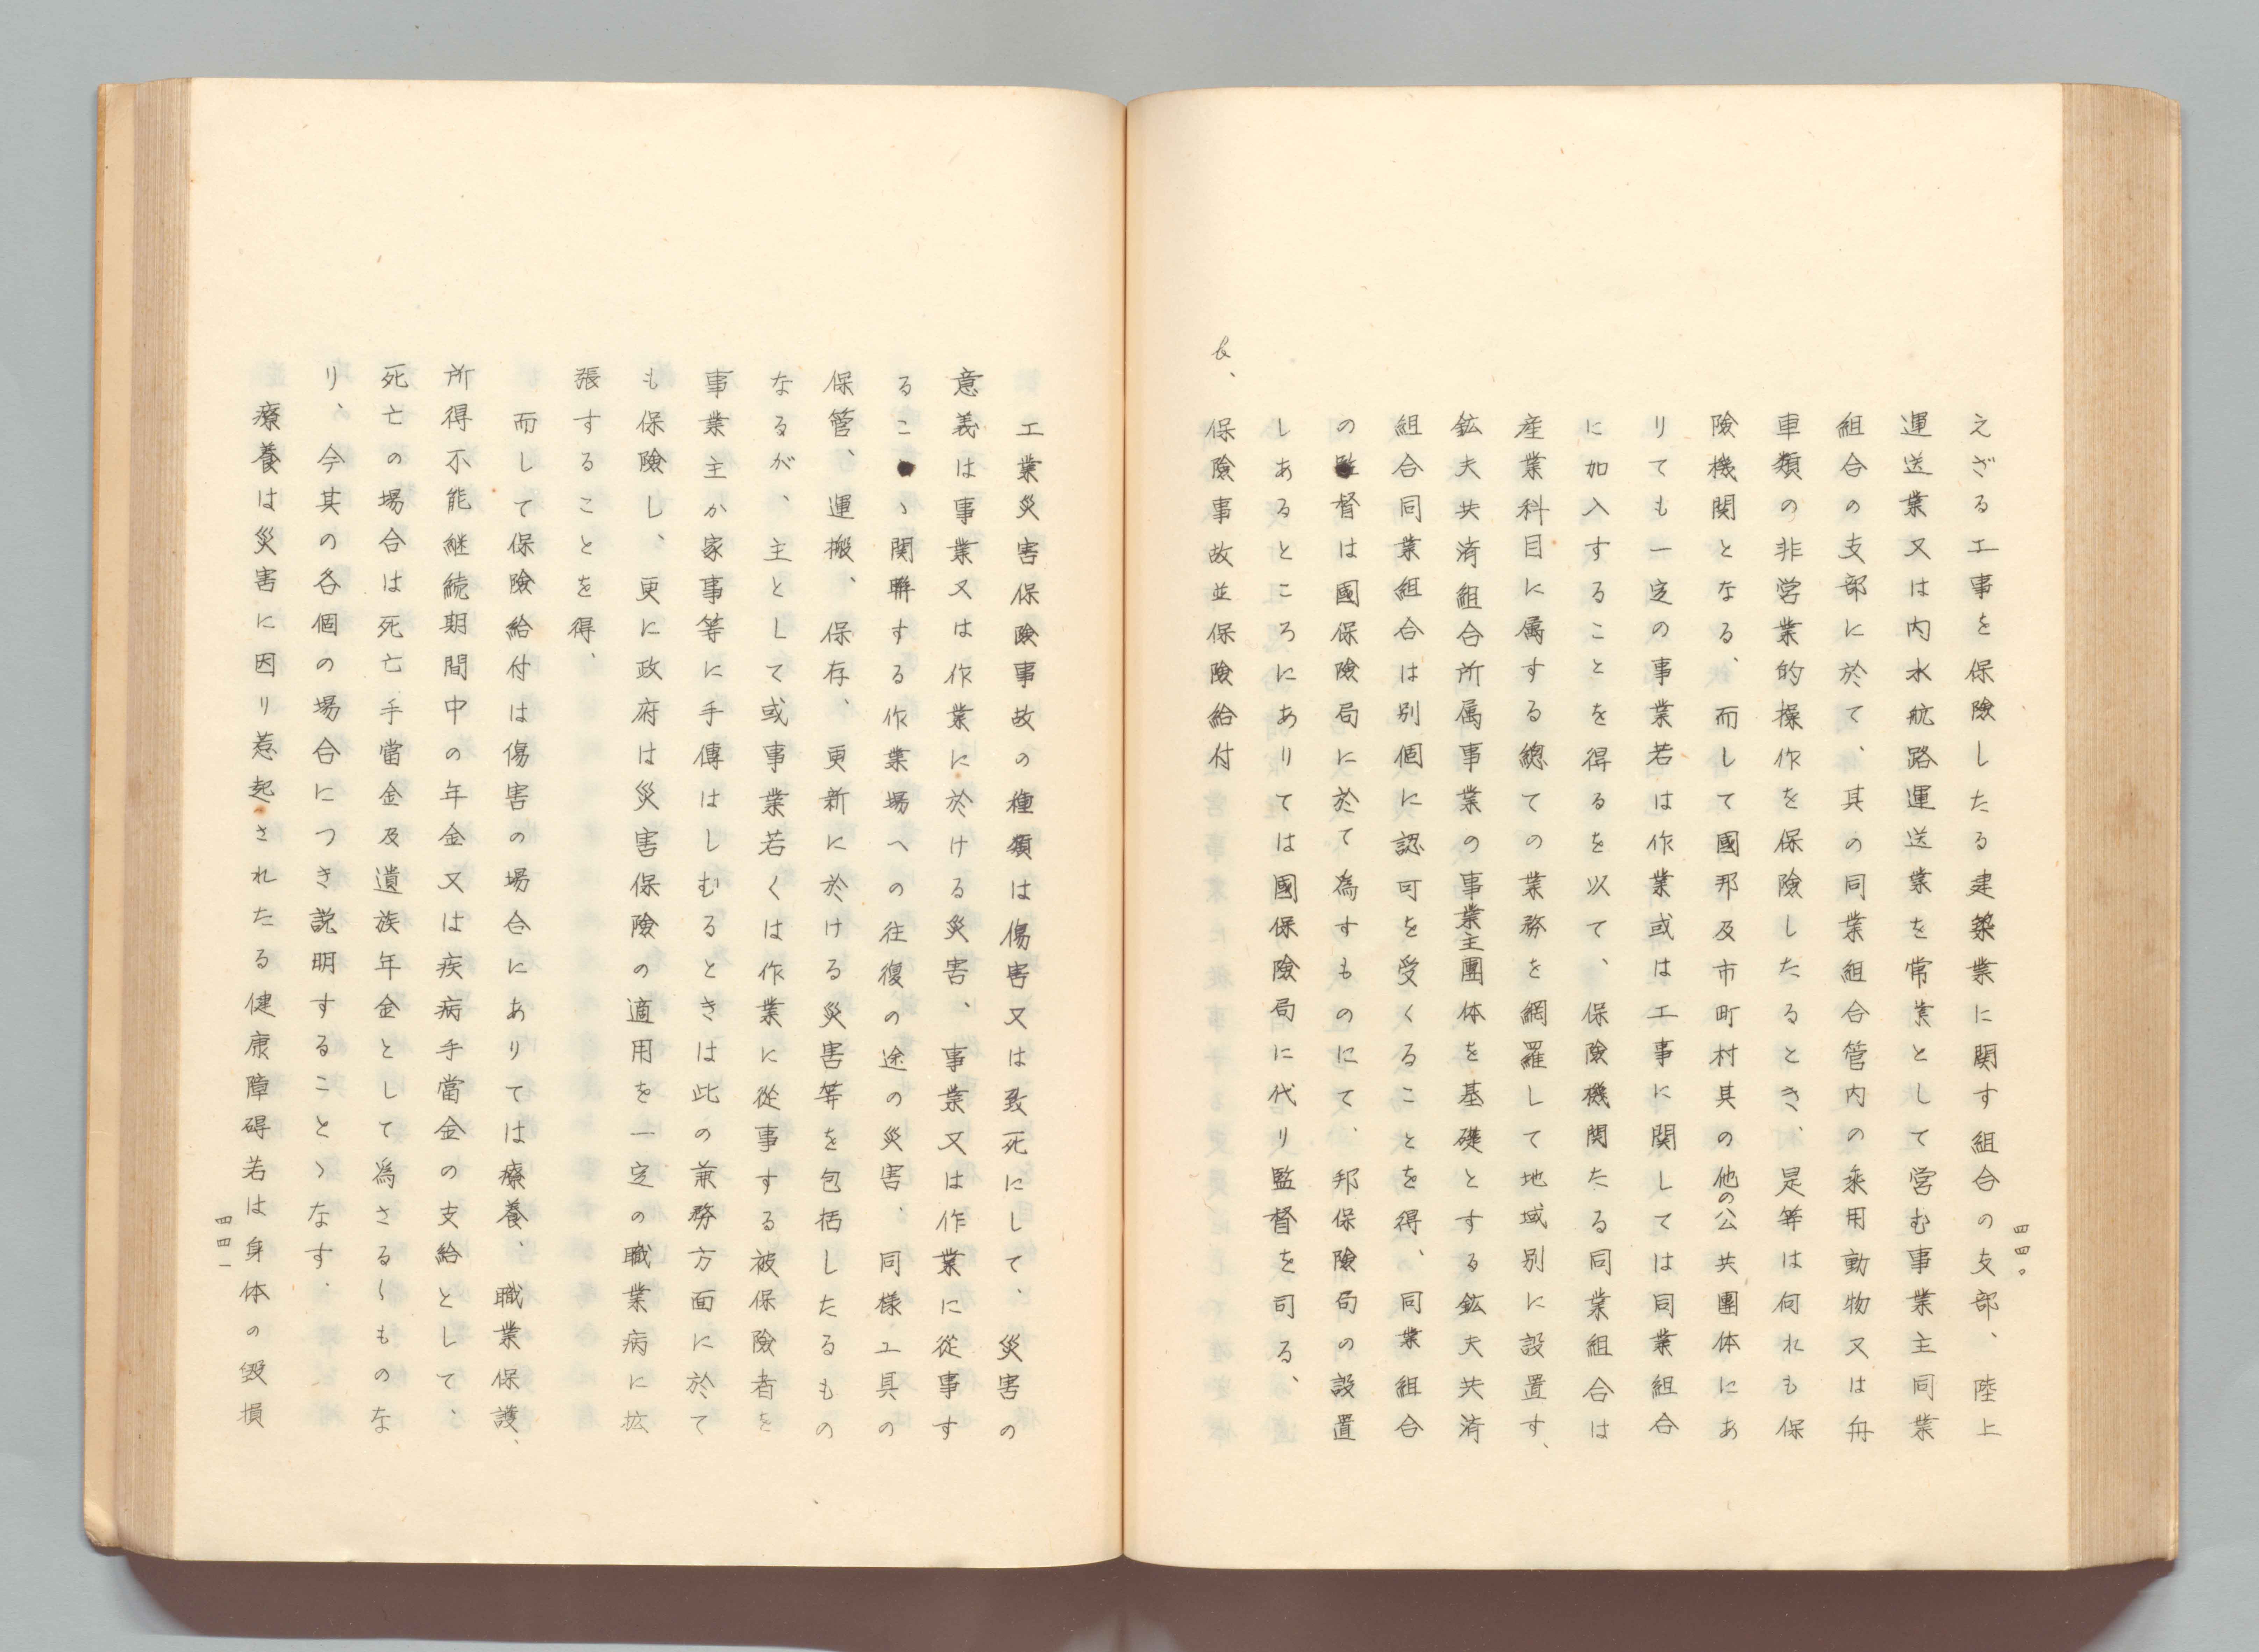 えざる工事を保險したる建築業に関す組合の支部、陸上
運送業又は内水航路運送業を常業として営む事業主同業
組合の支部に於て、其の同業組合管内の乘用動物又は舟
車類の非営業的操作を保險したるとき、是等は何れも保
險機関となる、而して國邦及市町村其の他の公共團体にあ
りても一定の事業若は作業或は工事に関しては同業組合
に加入することを得るを以て、保險機関たる同業組合は
産業科目に属する總ての業務を綱羅して地域別に設置す、
鉱夫共済組合所属事業の事業主團体を基礎とする鉱夫共済
組合同業組合は別個に認可を受くることを得、同業組合
の監督は國保險局に於て為すものにて、邦保險局の設置
しあるところにありては國保險局に代り監督を司る、
b、保險事故並保險給付
四四〇
工業災害保険事故の種類は傷害又は致死にして、災害の
意義は事業又は作業に於ける災害、事業又は作業に從事す
るこ、関聯する作業場への往復の途の災害、同樣工具の
保管、運搬、保存、更新に於ける災害等を包括したるもの
なるが、主として或事業若くは作業に從事する被保險者を
事業主か家事等に手傳はしむるときは此の兼務方面に於て
も保險し、更に政府は災害保險の適用を一定の職業病に拡
張することを得、
而して保險給付は傷害の場合にありては療養、職業保護、
所得不能継続期間中の年金又は疾病手當金の支給として、
死亡の場合は死亡手當金及遺族年金として為さるゝものな
り、今其の各個の場合につき説明することゝなす.
療養は災害に因り惹起されたる健康障碍若は身体の毀損
四四一